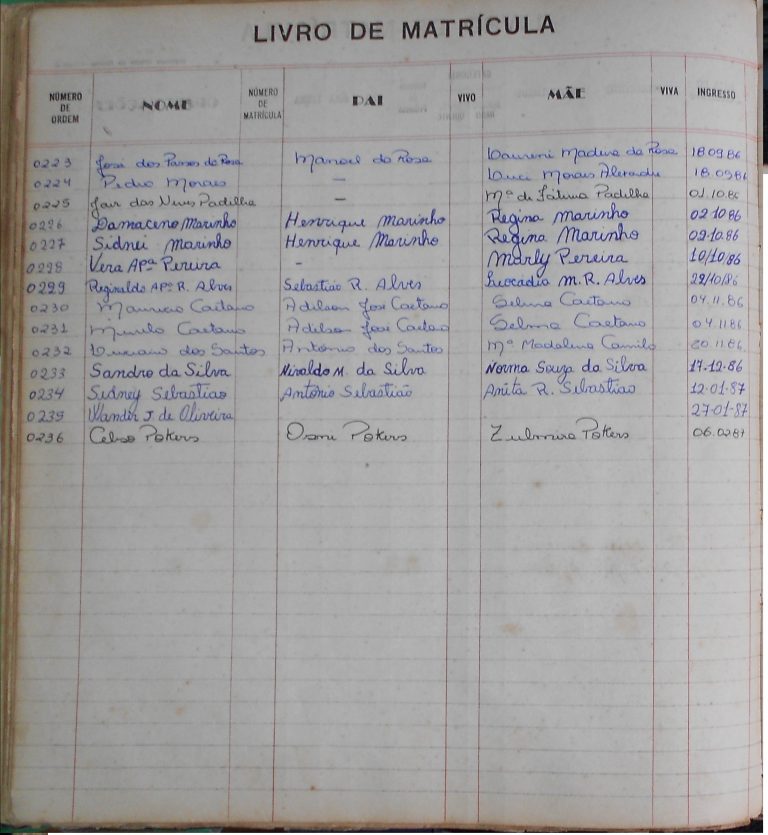 LIVRO DE MATRÍCULA
NÚMERO DE ORDEM NOME NÚMERO DE MATRÍCULA PAI VIVO MÃE VIVA INGRESSO
0223 José dos Passos da Rosa Manoel da Rosa Laureni Madura da Rosa 18 09 86
0224 Pedro Moraes — Luci Moraes 18.09 86
0225 Jair das Neves Padilha — Mª de Fátima Padilha 01.10.86
0226 Damaceno Marinho Henrique Marinho Regina Marinho 02.10.86
0227 Sidnei Marinho Henrique Marinho Regina Marinho 02.10.86
0228 Vera Apª Pereira - Marly Pereira 10/10/86
0229 Reginaldo Apº R. Alves Sebastião R. Alves Leocádia M. R. Alves 28/10/86
0230 Mauricio Caetano Adilson José Caetano Selma Caetano 04.11.86
0231 Murilo Caetano Adilson José Caetano Selma Caetano 04.11 86
0232 Luciano dos Santos Antonio dos Santos Mª Madalena Camilo 20.11.86
0233 Sandro da Silva Nivaldo M. da Silva Norma Souza da Silva 17-12-86
0234 Sidney Sebastião Antônio Sebastião Anita R. Sebastião 12-01-87
0235 Wander J. de Oliveira 27-01-87
0236 Celso Pokers Osni Pokers Zulmira Pokers 06.02 87